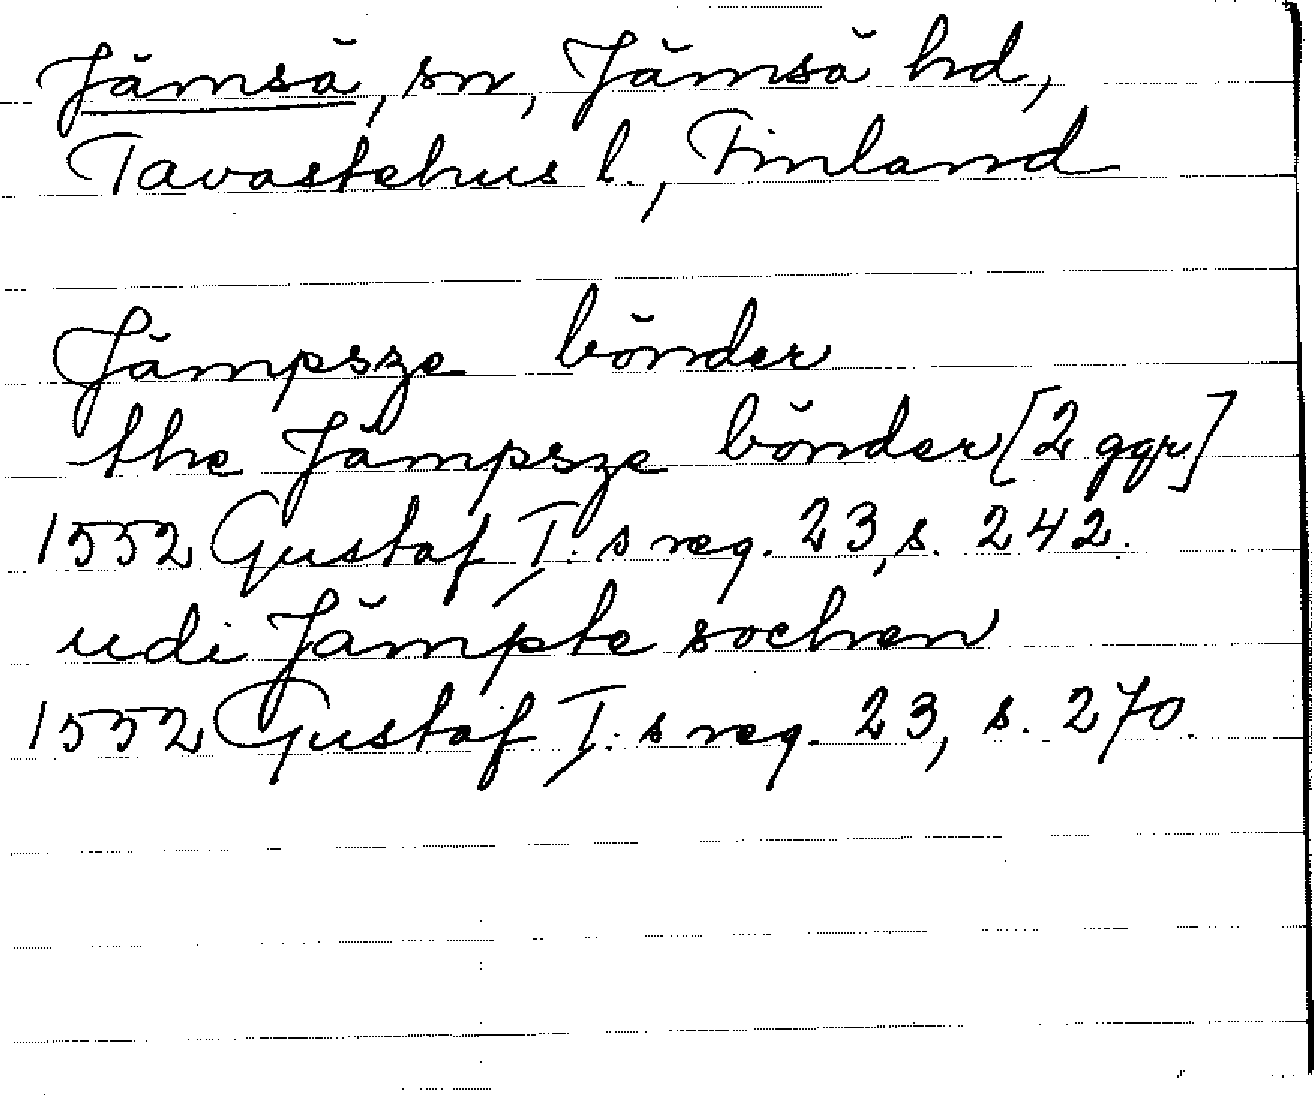 Jämsä, sn, Jämsä hd,
Tavastehus l., Finland
Jämpsze bönder
the Jämpsze bönder [2 ggr]
1552 Gustaf I:s reg. 23, s. 242.
udi Jämpte sochen
1552 Gustaf I:s reg. 23, s. 270.